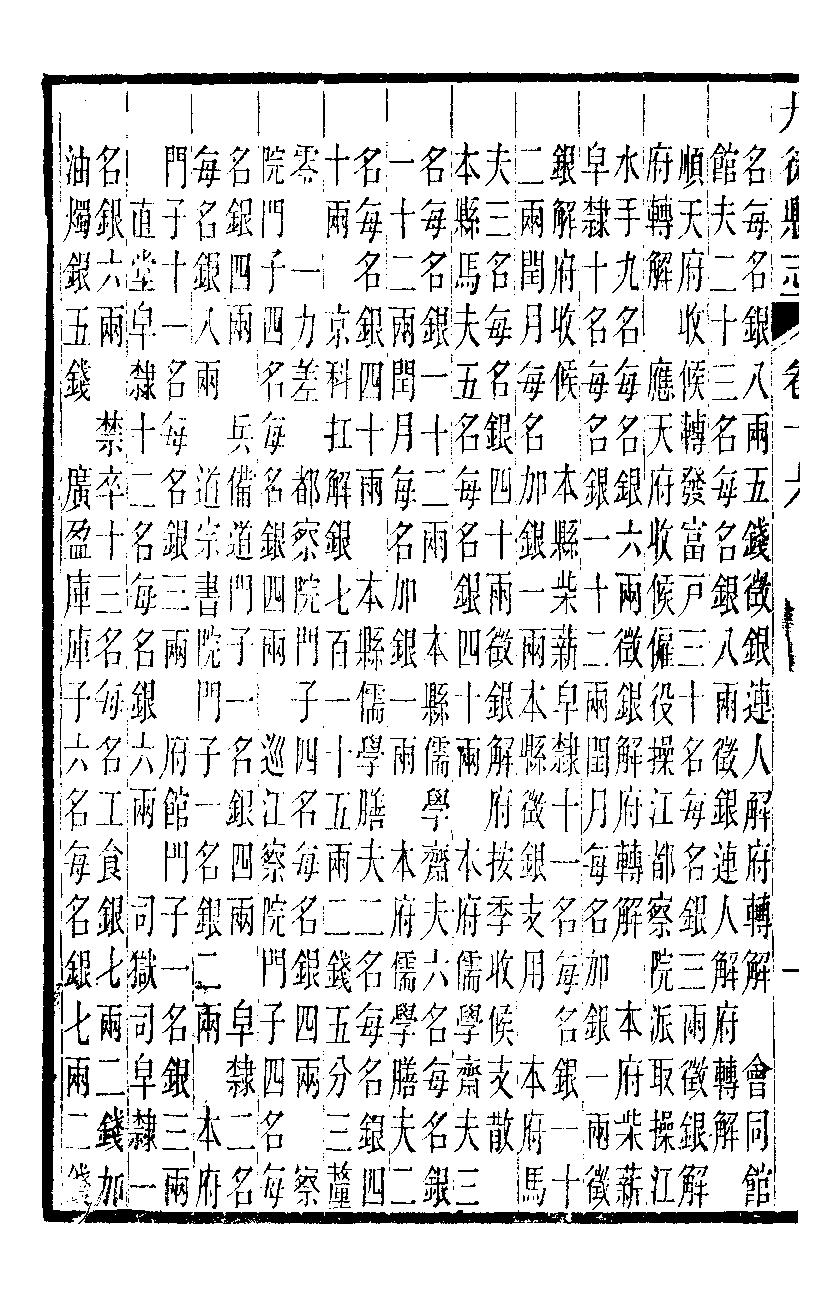 德縣志　卷十六
名每名銀八兩五錢徵銀連人解府轉解　會同館
館夫二十三名每名銀八兩徵銀連人解府轉解
順天府收候轉發富戶三十名每名銀三兩徵銀解
府轉解　應天府收候僱役操江都察院派取操江
水手九名每名銀六兩徵銀解府轉解　本府柴薪
皁隸十名每名銀一十二兩閏月每名加銀一兩徵
銀解府收候　本縣柴薪皁隸十一名每名銀一十
二兩閏月每名加銀一兩本縣徵銀支用　本府馬
夫三名每名銀四十兩徵銀解府按季收候支散
本縣馬夫五名每名銀四十兩　本府儒學齋夫三
名每名銀一十二兩　本縣儒學齋夫六名每名銀
一十二兩閏月每名加銀一兩　本府儒學膳夫二
名每名銀四十兩　本縣儒學膳夫二名每名銀四
十兩　京科扛解銀七百一十五兩二錢五分三釐
零　一力差　都察院門子四名每名銀四兩　察
院門子四名每名銀四兩　巡江察院門子四名每
名銀四兩　兵備道門子一名銀四兩　皁隸二名
每名銀八兩　道宗書院門子一名銀二兩　本府
門子十一名每名銀三兩　府館門子一名銀三兩
直堂皁隸十二名每名銀六兩　司獄司皁隸一
名銀六兩　禁卒十三名每名工食銀七兩二錢加
油燭銀五錢　廣盈庫庫子六名每名銀七兩二錢